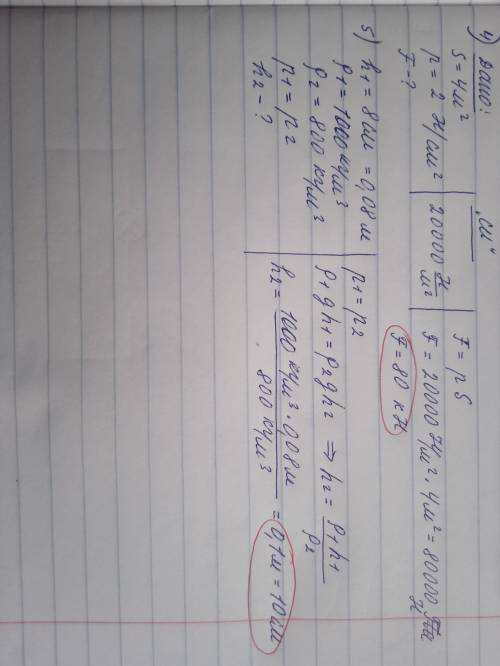 4) Дано:
S = 4 м²
p = 2 Н/см²
F - ?
"СИ"
20000 Н/м²
F = pS
F = 20000 Н/м² · 4 м² = 80000 Н
F = 80 кН
5) h₁ = 8 см = 0,08 м
ρ₁ = 1000 кг/м³
ρ₂ = 800 кг/м³
p₁ = p₂
h₂ - ?
p₁ = p₂
ρ₁gh₁ = ρ₂gh₂ ⇒ h₂ = ρ₁h₁/ρ₂
h₂ = 1000 кг/м³ · 0,08 м / 800 кг/м³ = 0,1 м = 10 см